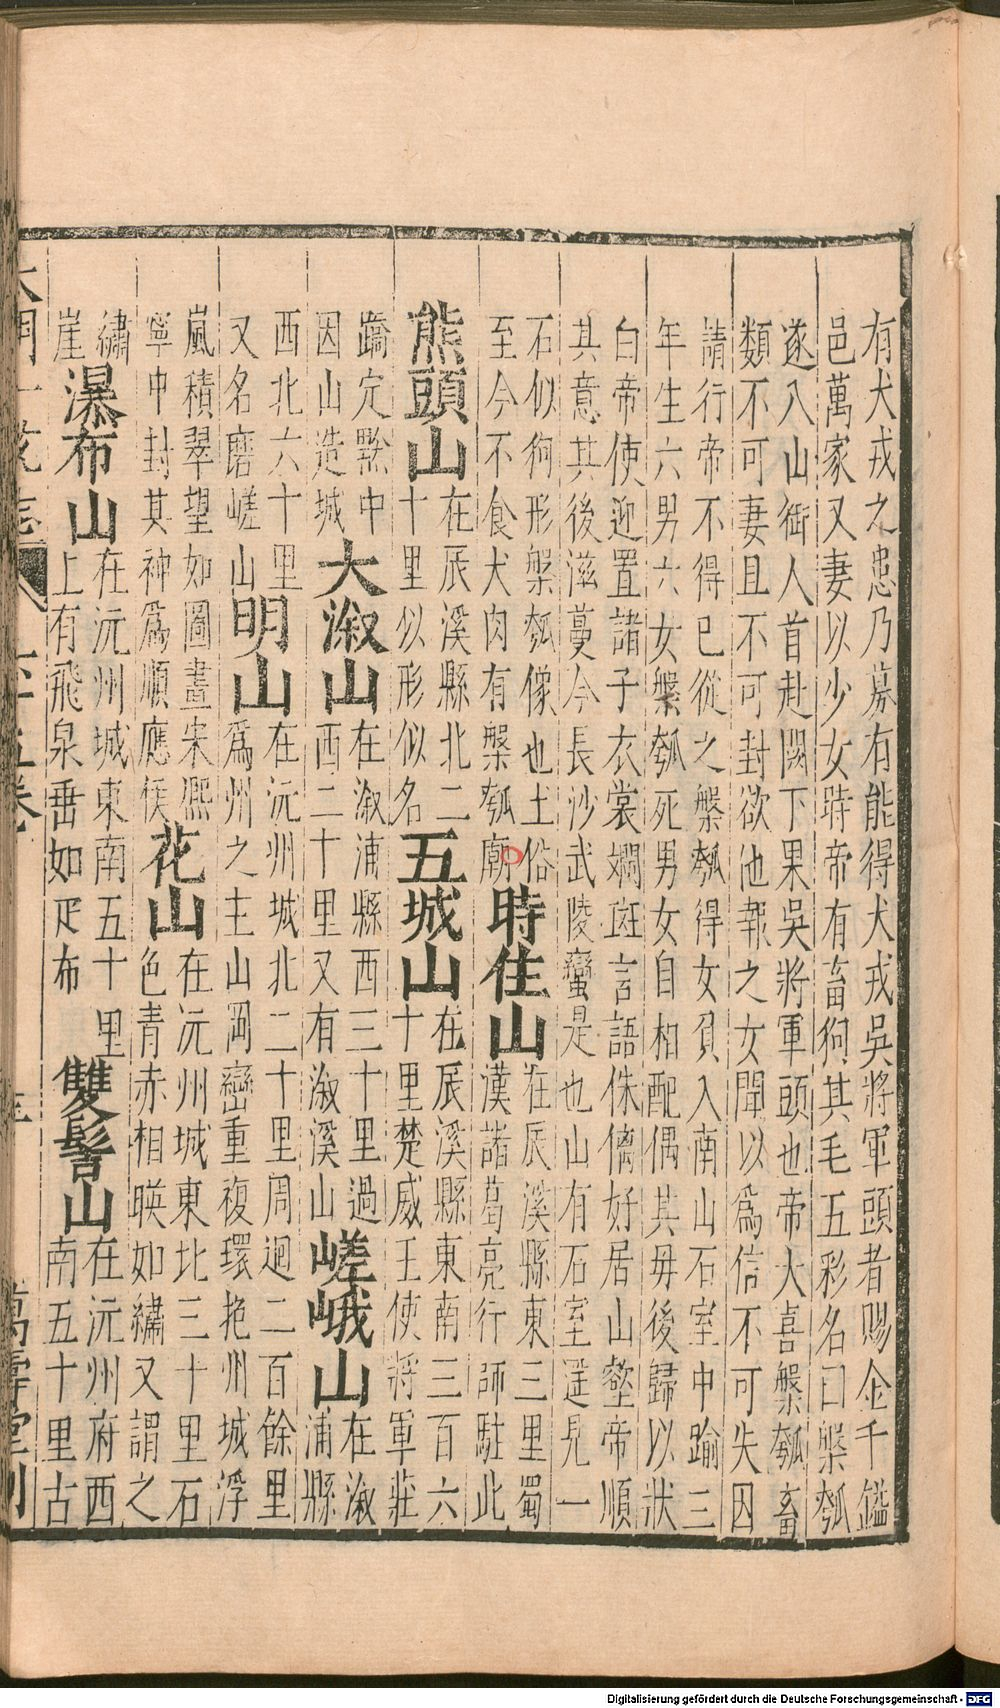 有犬戎之患乃募有能得犬戎吳將軍頭者賜金千鎰
邑萬家又妻以少女時帝有畜狗其毛五彩名曰槃瓠
遂入山銜人首赴闕下果吳將軍頭也帝大喜槃瓠畜
類不可妻且不可封欲他報之女聞以為信不可失因
請行帝不得已從之槃瓠得女負入南山石室中踰三
年生六男六女槃瓠死男女自相配偶其毋後歸以狀
白帝使迎置諸子衣裳斕斑言語侏僑好居山壑帝順
其意其後滋蔓今長沙武陵蠻是也山有石室遥見一
石似狗形槃瓠像也土俗
至今不食犬肉有槃瓠廟
時住山
在辰溪縣東三里蜀
漢諸葛亮行師駐此
熊頭山
在辰溪縣北二
十里似形似名
五城山
在辰溪縣東南三百六
十里楚威王使將軍莊
蹻定黔中
因山造城
大溆山
在溆浦縣西三十里過
西二十里又有溆溪山
嵯峨山
在溆
浦縣
西北六十里
又名磨嵯山
明山
在沅州城北二十里周迴二百餘里
為州之主山岡巒重複環抱州城浮
嵐積翠望如圖畫宋熈
寧中封其神為順應侯
花山
在沅州城東北三十里石
色青赤相映如繡又謂之
繡
崖
瀑布山
在沅州城東南五十里
上有飛泉垂如疋布
雙髻山
在沅州府西
南五十里古
大明一統志
十五卷
萬壽堂刊
Digitalisierung gefördert durch die Deutsche Forschungsgemeinschaft - DFG